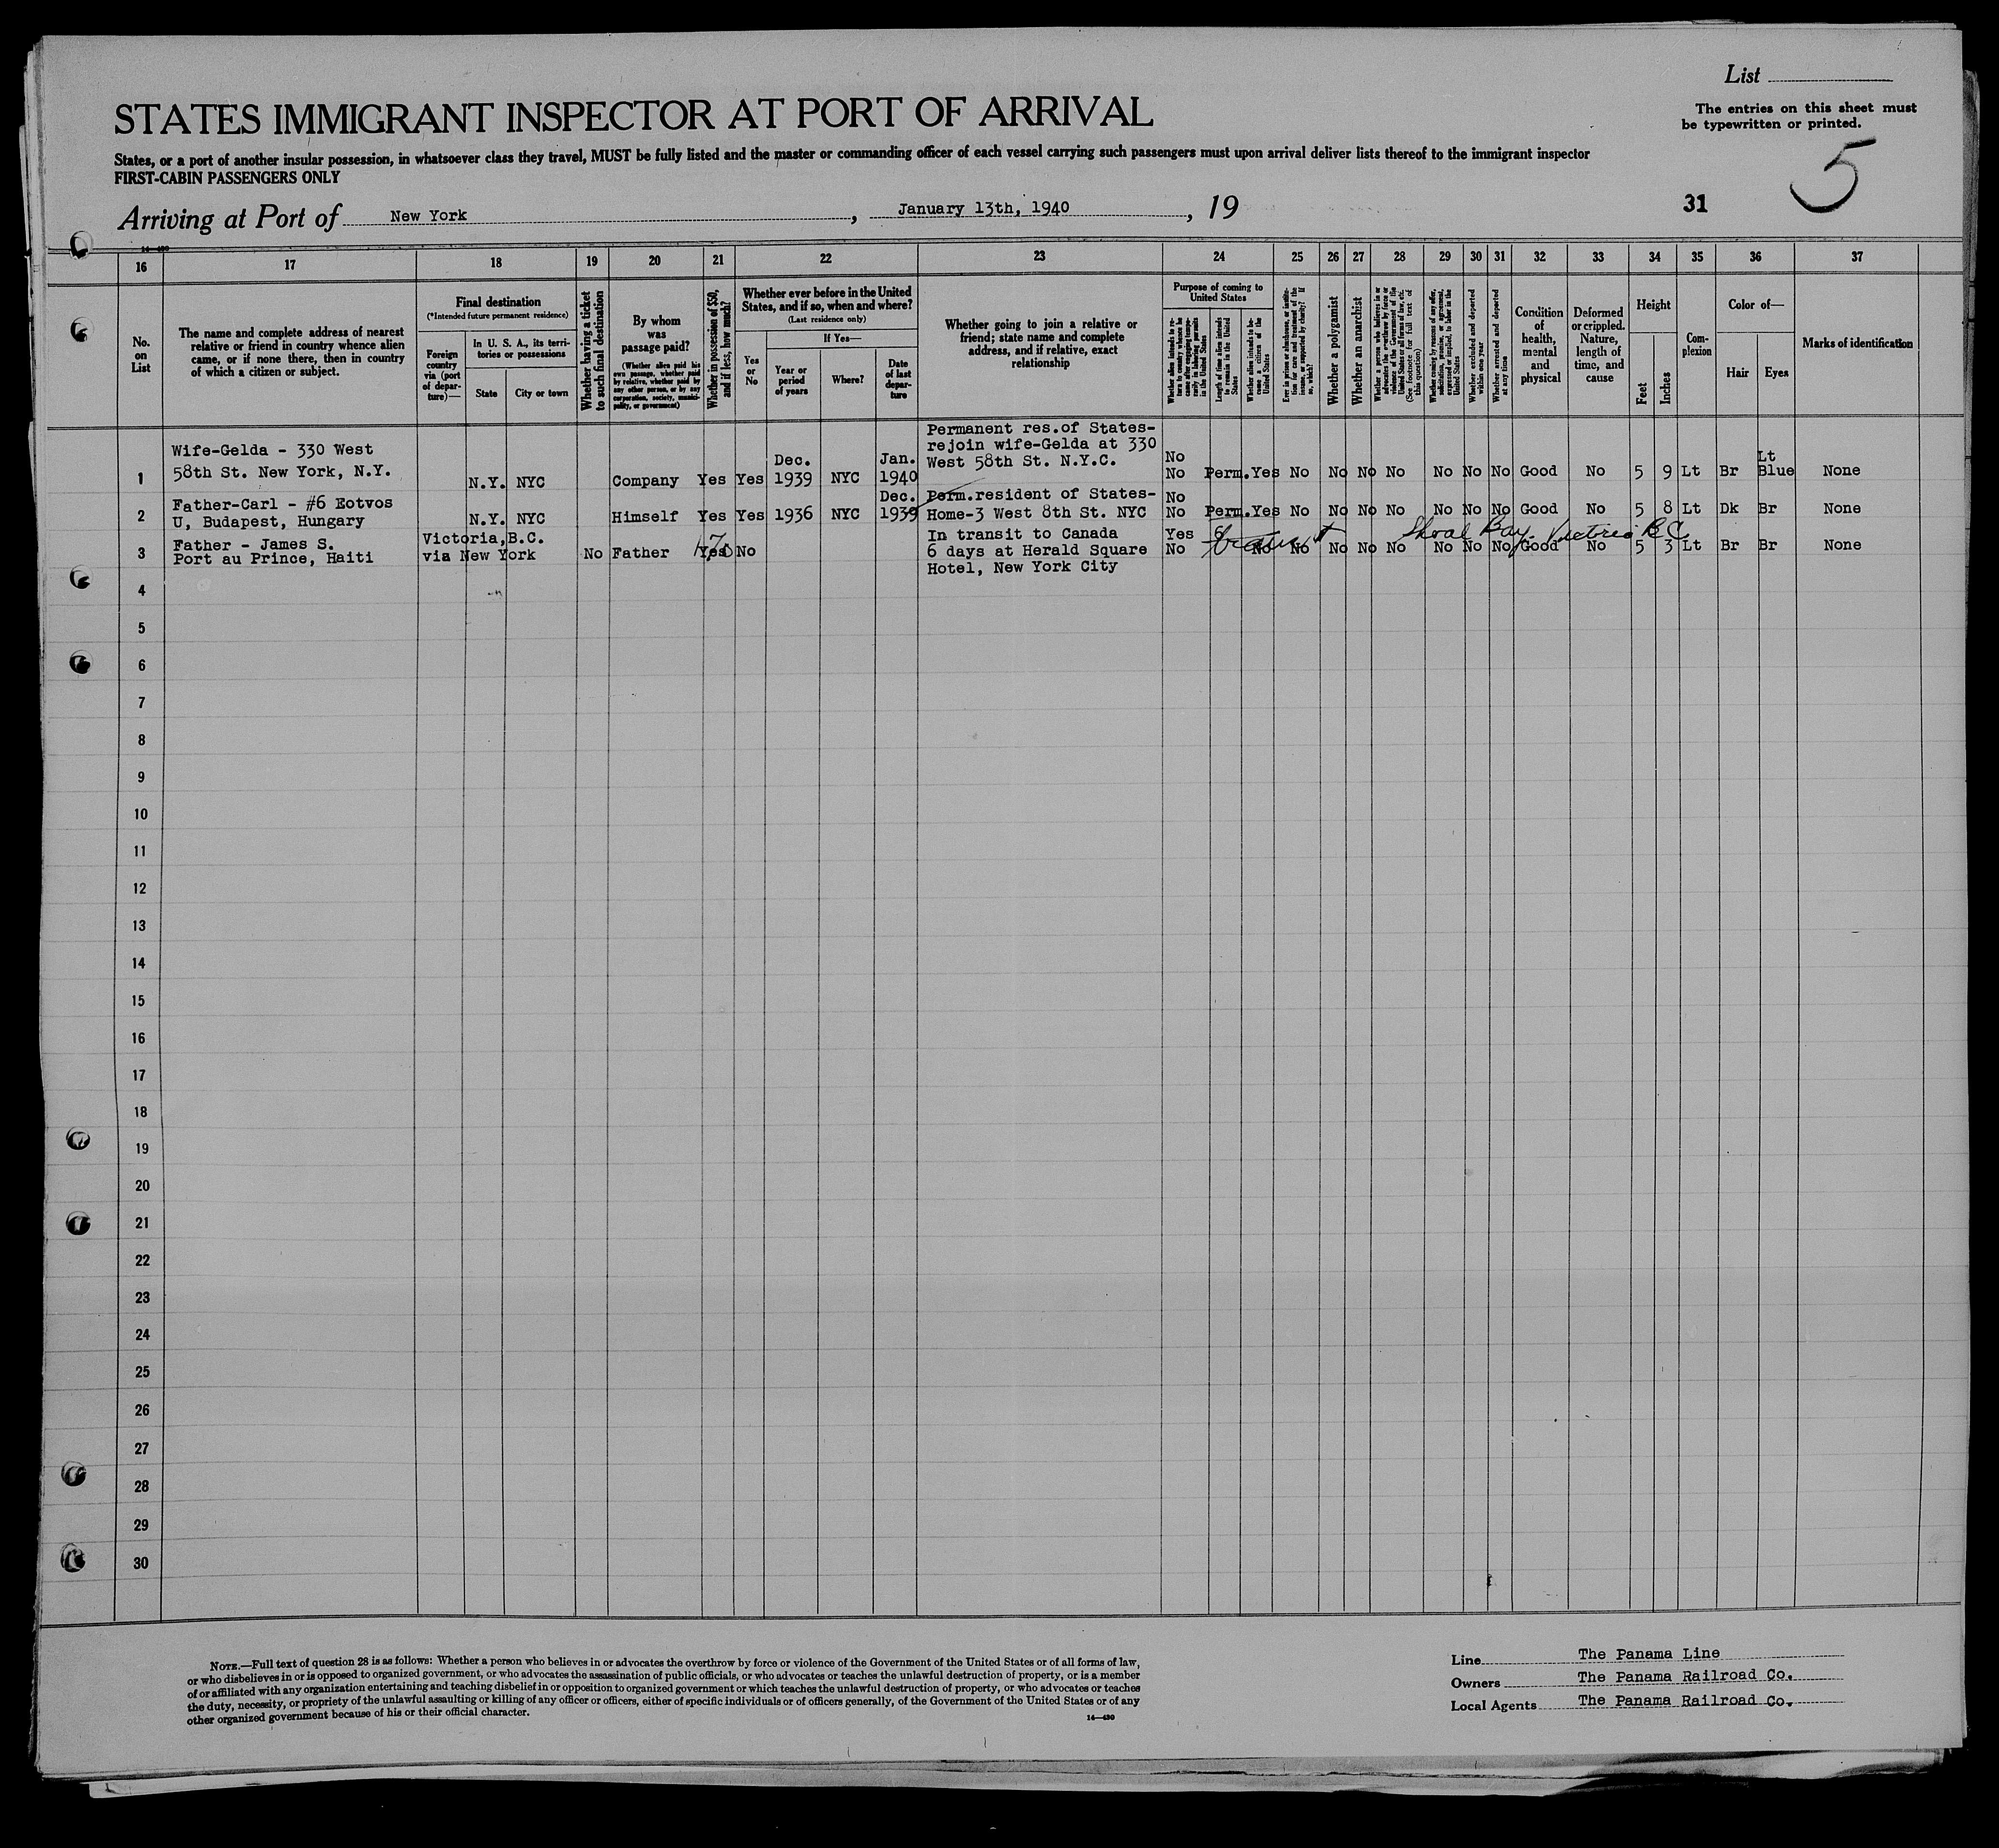 List
STATES IMMIGRANT INSPECTOR AT PORT OF ARRIVAL
The entries on this sheet must
be typewritten or printed.
States, or a port of another insular possession, in whatsoever class they travel, MUST be fully listed and the master or commanding officer of each vessel carrying such passengers must upon arrival deliver lists thereof to the immigrant inspector
FIRST-CABIN PASSENGERS ONLY
5
Arriving at Port of New York, January 13th, 1940, 19
31
14—430
16 17 18 19 20 21 22 23 24 25 26 27 28 29 30 31 32 33 34 35 36 37
No. on List
The name and complete address of nearest
relative or friend in country whence alien
came, or if none there, then in country
of which a citizen or subject.
Final destination
(*Intended future permanent residence)
Foreign country via (port of departure)—
In U. S. A., its territories or possessions
State
City or town
Whether having a ticket
to such final destination
By whom
was
passage paid?
(Whether alien paid his
own passage, whether paid
by relative, whether paid by
any other person, or by any
corporation, society, munici-
pality, or government)
Whether in possession of $50,
and if less, how much?
Whether ever before in the United
States, and if so, when and where?
(Last residence only)
Yes or No
If Yes—
Year or period of years
Where?
Date of last departure
Whether going to join a relative or
friend; state name and complete
address, and if relative, exact
relationship
Purpose of coming to
United States
Whether alien intends to re-
turn to country whence he
came after engaging tempo-
rarily in laboring pursuits
in the United States
Length of time alien intends
to remain in the United
States
Whether alien intends to be-
come a citizen of the
United States
Ever in prison or almshouse, or institu-
tion for care and treatment of the
insane, or supported by charity? If
so, which?
Whether a polygamist
Whether an anarchist
Whether a person who believes in or
advocates the overthrow by force or
violence of the Government of the
United States or all forms of law, etc.
(See footnote for full text of
this question)
Whether coming by reasons of any offer,
solicitation, promise, or agreement,
expressed or implied, to labor in the
United States
Whether excluded and deported
within one year
Whether arrested and deported
at any time
Condition
of
health,
mental
and
physical
Deformed
or crippled.
Nature,
length of
time, and
cause
Height
Feet
Inches
Com-
plexion
Color of—
Hair
Eyes
Marks of identification
Permanent res.of States-
Wife-Gelda - 330 West rejoin wife-Gelda at 330
58th St. New York, N.Y. Dec. Jan. West 58th St. N.Y.C. No Lt
1 N.Y. NYC Company Yes Yes 1939 NYC 1940 No Perm. Yes No No No No No No No Good No 5 9 Lt Br Blue None
Father-Carl - #6 Eotvos Dec. Perm.resident of States- No
2 U, Budapest, Hungary N.Y. NYC Himself Yes Yes 1936 NYC 1939 Home-3 West 8th St. NYC No Perm. Yes No No No No No No No Good No 5 8 Lt Dk Br None
Father - James S. Victoria,B.C. In transit to Canada Yes Shoal Bay. Victoria B.C.
3 Port au Prince, Haiti via New York No Father Yes No 6 days at Herald Square No transit No No No No No No No No Good No 5 3 Lt Br Br None
Hotel, New York City
4
5
6
7
8
9
10
11
12
13
14
15
16
17
18
19
20
21
22
23
24
25
26
27
28
29
30
NOTE.—Full text of question 28 is as follows: Whether a person who believes in or advocates the overthrow by force or violence of the Government of the United States or of all forms of law,
or who disbelieves in or is opposed to organized government, or who advocates the assassination of public officials, or who advocates or teaches the unlawful destruction of property, or is a member
of or affiliated with any organization entertaining and teaching disbelief in or opposition to organized government or which teaches the unlawful destruction of property, or who advocates or teaches
the duty, necessity, or propriety of the unlawful assaulting or killing of any officer or officers, either of specific individuals or of officers generally, of the Government of the United States or of any
other organized government because of his or their official character.
14—430
Line The Panama Line
Owners The Panama Railroad Co.
Local Agents The Panama Railroad Co.